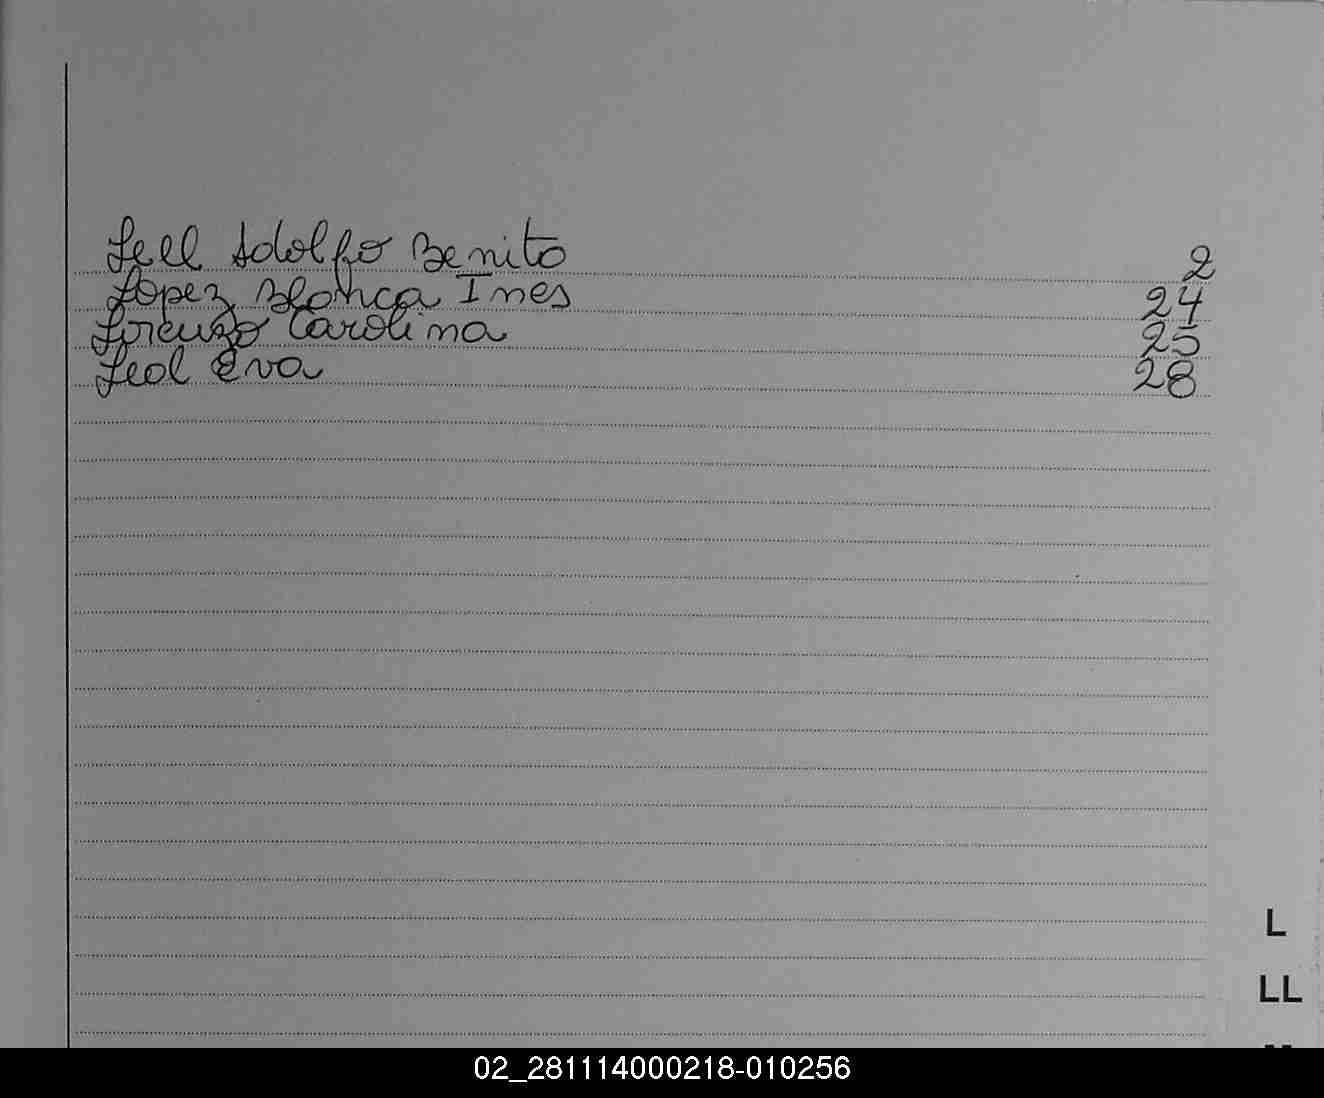 Lell Adolfo Benito 2
Lopez Blanca Ines 24
Lorenzo Carolina 25
Leal Eva 28
L
LL
02_281114000218-010256